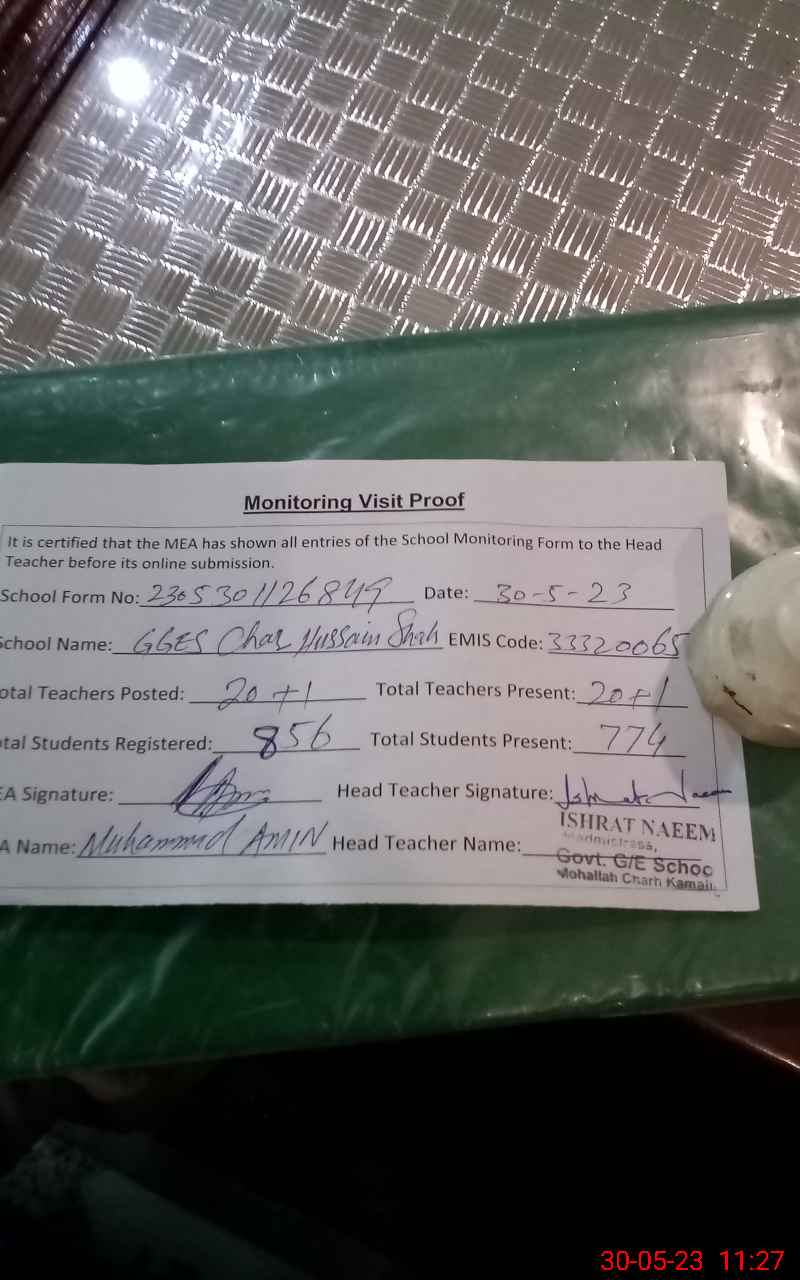 Monitoring Visit Proof
It is certified that the MEA has shown all entries of the School Monitoring Form to the Head
Teacher before its online submission.
School Form No: 2305301126849 Date: 30-5-23
School Name: GGES Chah Hussain Shah EMIS Code: 33320065
otal Teachers Posted: 20+1 Total Teachers Present: 20+1
tal Students Registered: 856 Total Students Present: 774
EA Signature: Head Teacher Signature: Ishrat Naeem
A Name: Muhammad AMIN Head Teacher Name:
ISHRAT NAEEM
admistress,
Govt. G/E Schoo
Mohallah Charh Kamali
30-05-23 11:27